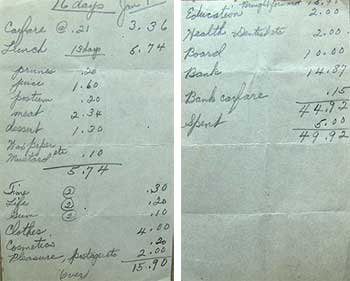 16 days Jan 1
Carfare @ .21 3.36
Lunch 13 days 5.74
prunes .20
juice 1.60
postum .20
meat 2.34
dessert 1.30
Wax paper
Mustard etc .10
5.74
Time ② .30
Life ② .20
Gum ② .10
Clothes 4.00
Cosmetics .20
Pleasure, postage etc 2.00
15.90
over
Brought forward 15.90
Education 2.00
Health & Dentist etc 2.00
Board 10.00
Bank 14.87
Bank carfare .15
44.92
Spent 5.00
49.92